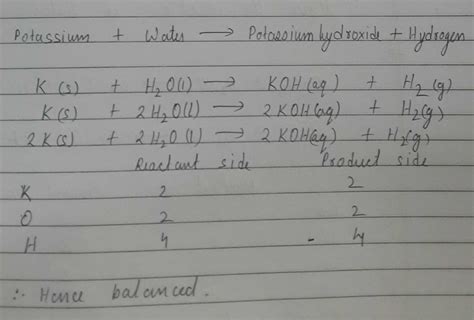 Potassium + Water → Potassium hydroxide + Hydrogen
K(s) + H₂O(l) → KOH(aq) + H₂(g)
K(s) + 2H₂O(l) → 2KOH(aq) + H₂(g)
2K(s) + 2H₂O(l) → 2KOH(aq) + H₂(g)
Reactant side Product side
K 2 2
O 2 2
H 4 - 4
∴ Hence balanced.